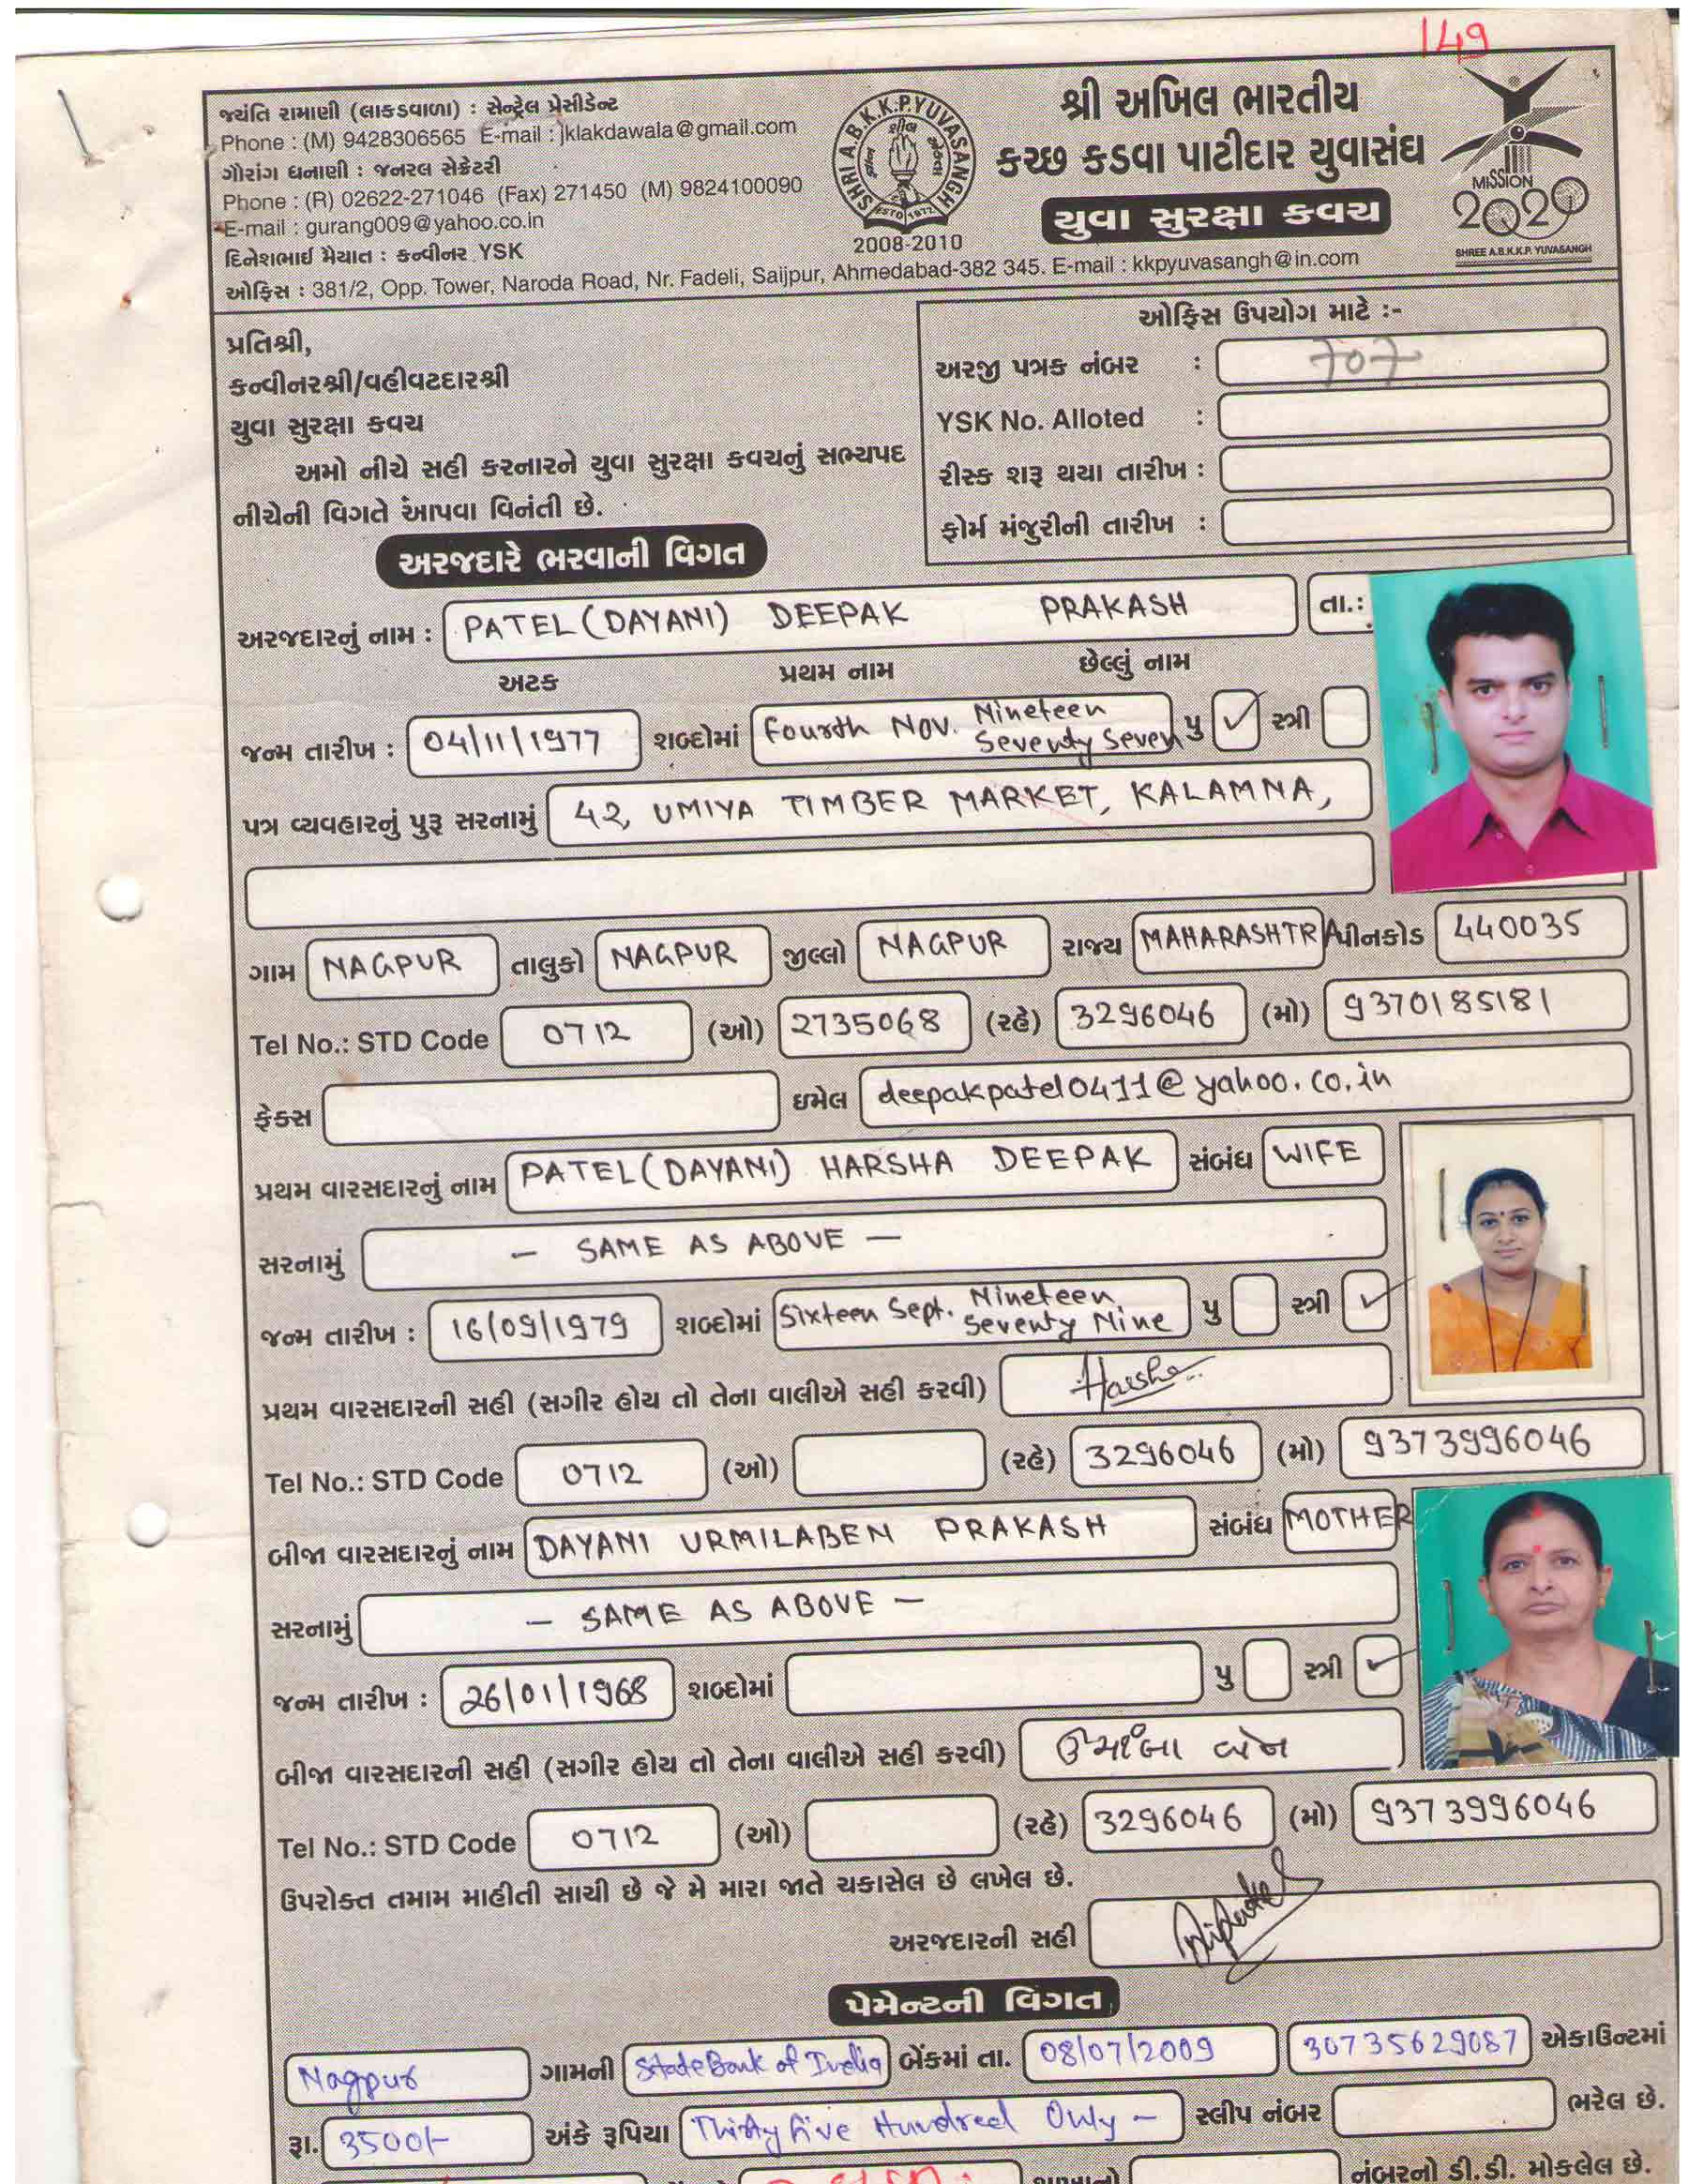 149
જયંતિ રામાણી (લાકડાવાળા) : સેન્ટ્રેલ પ્રેસીડેન્ટ
Phone : (M) 9428306565 E-mail : jklakdawala@gmail.com
ગૌરાંગ ધનાણી : જનરલ સેક્રેટરી
Phone : (R) 02622-271046 (Fax) 271450 (M) 9824100090
E-mail : gurang009@yahoo.co.in
દિનેશભાઈ મૈયાત : કન્વીનર YSK
SHRI A.B.K.K.P. YUVASANGH
ESTD 1977
2008-2010
શ્રી અખિલ ભારતીય
કચ્છ કડવા પાટીદાર યુવાસંઘ
યુવા સુરક્ષા કવચ
MISSION
2020
SHREE A.B.K.K.P. YUVASANGH
ઓફિસ : 381/2, Opp. Tower, Naroda Road, Nr. Fadeli, Saijpur, Ahmedabad-382 345. E-mail : kkpyuvasangh@in.com
પ્રતિશ્રી,
કન્વીનરશ્રી/વહીવટદારશ્રી
યુવા સુરક્ષા કવચ
અમો નીચે સહી કરનારને યુવા સુરક્ષા કવચનું સભ્યપદ
નીચેની વિગતે આંપવા વિનંતી છે.
ઓફિસ ઉપયોગ માટે :-
અરજી પત્રક નંબર : 707
YSK No. Alloted :
રીસ્ક શરૂ થયા તારીખ :
ફોર્મ મંજુરીની તારીખ :
અરજદારે ભરવાની વિગત
અરજદારનું નામ : PATEL (DAYANI) DEEPAK PRAKASH તા.:
અટક પ્રથમ નામ છેલ્લું નામ
જન્મ તારીખ : 04/11/1977 શબ્દોમાં Fourth Nov. Nineteen Seventy Seven પુ ✓ સ્ત્રી
પત્ર વ્યવહારનું પુરૂ સરનામું 42, UMIYA TIMBER MARKET, KALAMNA,
ગામ NAGPUR તાલુકો NAGPUR જીલ્લો NAGPUR રાજ્ય MAHARASHTRA પીનકોડ 440035
Tel No.: STD Code 0712 (ઓ) 2735068 (રહે) 3296046 (મો) 9370185181
ફેક્સ ઇમેલ deepakpatel0411@yahoo.co.in
પ્રથમ વારસદારનું નામ PATEL (DAYANI) HARSHA DEEPAK સંબંધ WIFE
સરનામું - SAME AS ABOVE -
જન્મ તારીખ : 16/09/1979 શબ્દોમાં Sixteen Sept. Nineteen Seventy Nine પુ સ્ત્રી ✓
પ્રથમ વારસદારની સહી (સગીર હોય તો તેના વાલીએ સહી કરવી) Harsha
Tel No.: STD Code 0712 (ઓ) (રહે) 3296046 (મો) 9373996046
બીજા વારસદારનું નામ DAYANI URMILABEN PRAKASH સંબંધ MOTHER
સરનામું - SAME AS ABOVE -
જન્મ તારીખ : 26/01/1968 શબ્દોમાં પુ સ્ત્રી ✓
બીજા વારસદારની સહી (સગીર હોય તો તેના વાલીએ સહી કરવી)
Tel No.: STD Code 0712 (ઓ) (રહે) 3296046 (મો) 9373996046
ઉપરોક્ત તમામ માહીતી સાચી છે જે મે મારા જાતે ચકાસેલ છે લખેલ છે.
અરજદારની સહી
પેમેન્ટની વિગત
Nagpur ગામની State Bank of India બેંકમાં તા. 08/07/2009 30735629087 એકાઉન્ટમાં
રૂા. 3500/- અંકે રૂપિયા Thirty five Hundred Only - સ્લીપ નંબર ભરેલ છે.
નંબરનો ડી.ડી. મોકલેલ છે.